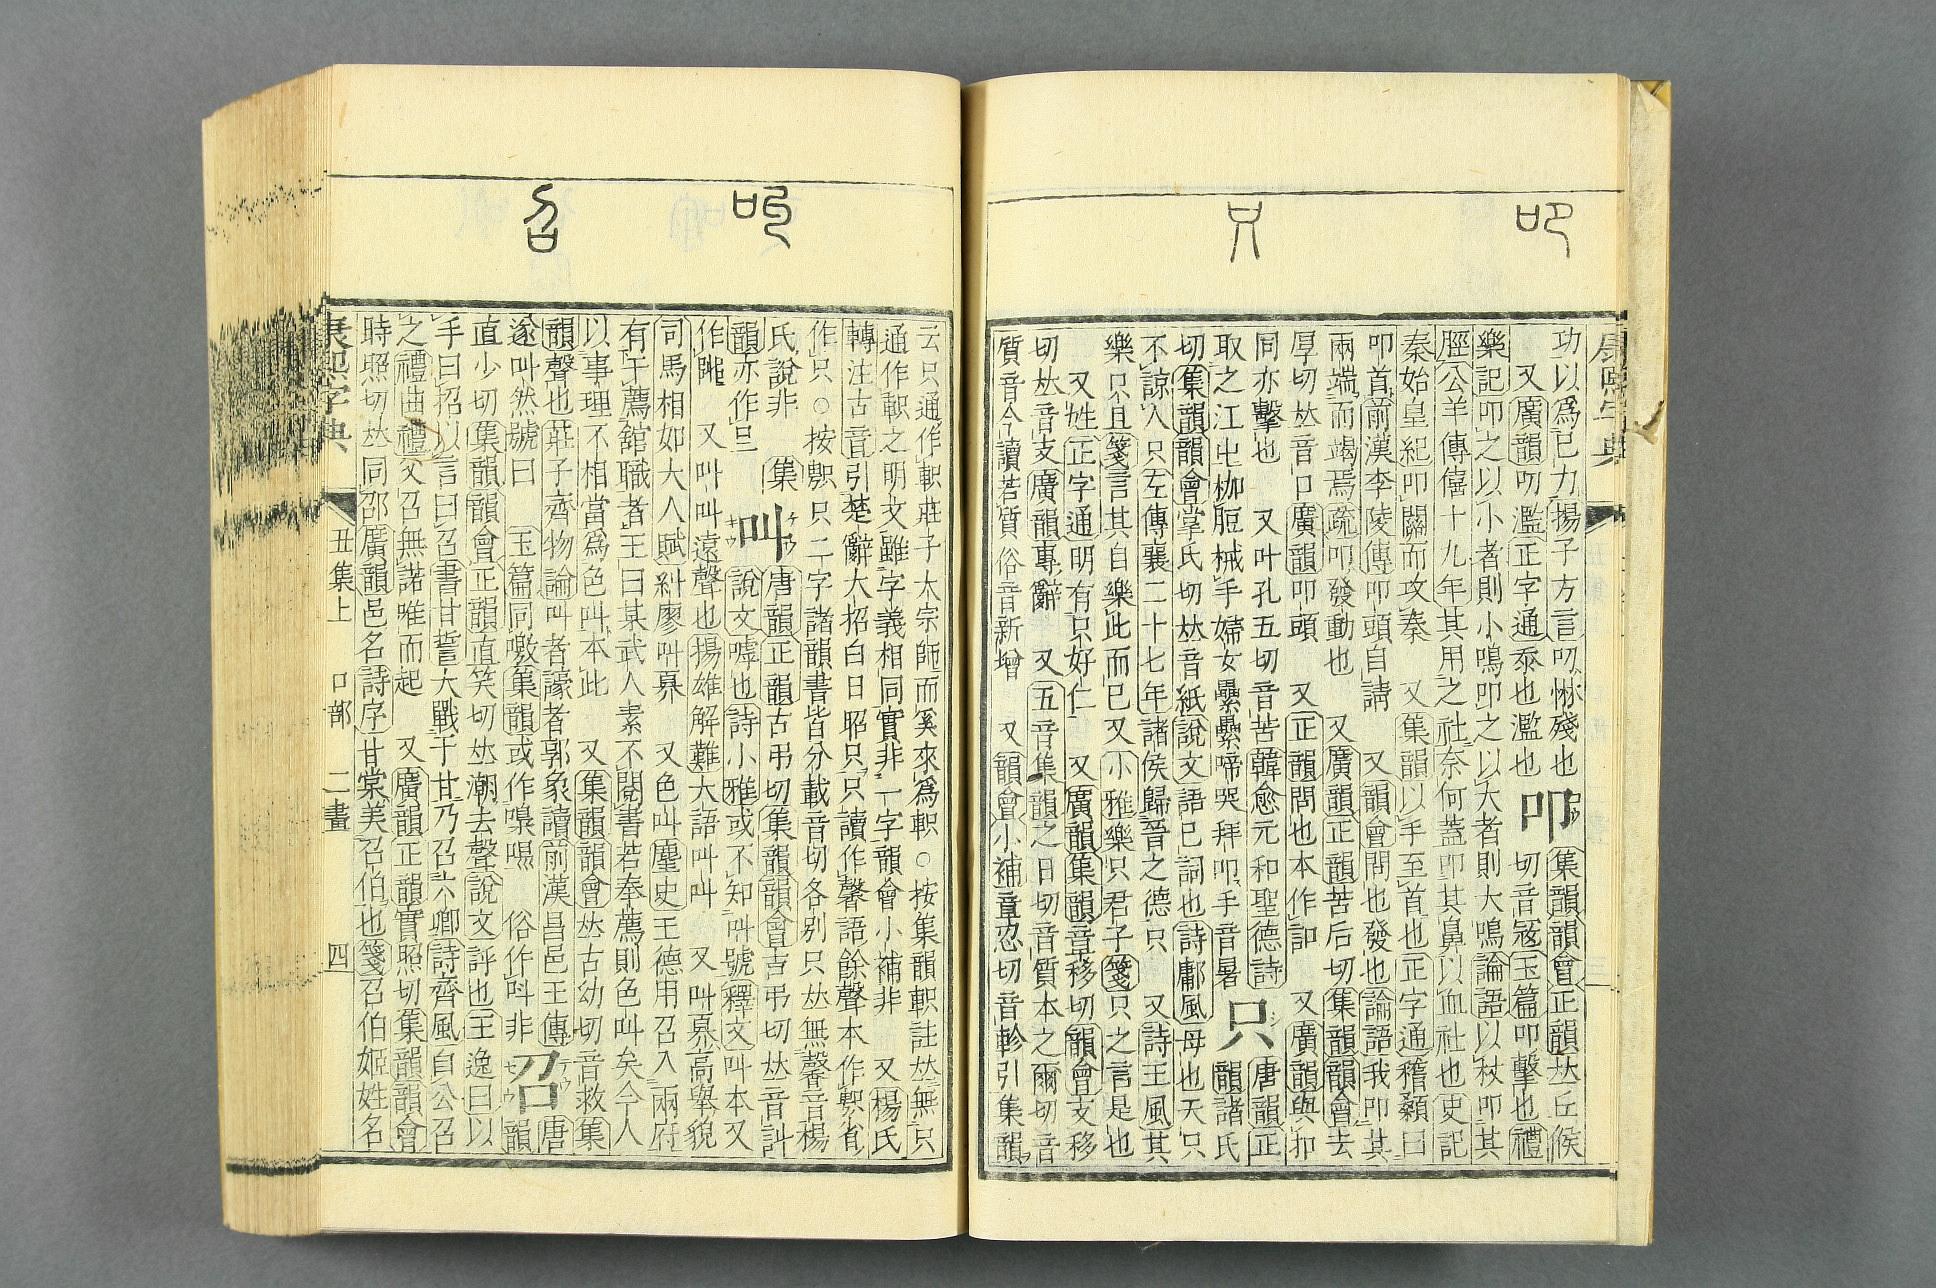 功以爲已力揚子方言叨惏殘也
又廣韻叨濫正字通忝也濫也
叩
集韻韻會正韻𠀤丘候
切音寇玉篇叩擊也禮
樂記叩之以小者則小鳴叩之以大者則大鳴論語以杖叩其
脛公羊傳僖十九年其用之社奈何蓋叩其鼻以血社也史記
秦始皇紀叩關而攻秦 又集韻以手至首也正字通稽顙曰
叩首前漢李陵傳叩頭自請 又韻會問也發也論語我叩其
兩端而竭焉疏叩發動也 又廣韻正韻苦后切集韻韻會去
厚切𠀤音口廣韻叩頭 又正韻問也本作訆 又廣韻與扣
同亦擊也 又叶孔五切音苦韓愈元和聖德詩
取之江中枷脰械手婦女纍纍啼哭拜叩手音暑
只
唐韻正
韻諸氏
切集韻韻會掌氏切𠀤音紙說文語已詞也詩鄘風母也天只
不諒人只左傳襄二十七年諸侯歸晉之德只 又詩王風其
樂只且箋言其自樂此而已又小雅樂只君子箋只之言是也
又姓正字通明有只好仁 又廣韻集韻章移切韻會支移
切𠀤音支廣韻專辭 又五音集韻之日切音質本之爾切音
質音今讀若質俗音新增 又韻會小補章忍切音軫引集韻
云只通作軹莊子大宗師而奚來爲軹○按集韻軹註𠀤無只
通作軹之明文雖字義相同實非一字韻會小補非 又楊氏
轉注古音引楚辭大招白日昭只只讀作馨語餘聲本作䚳省
作只○按䚳只二字諸韻書皆分載音切各别只𠀤無馨音楊
氏說非 集
韻亦作㫖
叫
唐韻正韻古弔切集韻韻會吉弔切𠀤音訆
說文嘑也詩小雅或不知叫號釋文叫本又
作嘂 又叫叫遠聲也揚雄解難大語叫叫 又叫奡高舉貌
司馬相如大人賦糾蓼叫奡 又色叫麈史王德用召入兩府
有干薦館職者王曰某武人素不閱書若奉薦則色叫矣今人
以事理不相當爲色叫本此 又集韻韻會𠀤古幼切音救集
韻聲也莊子齊物論叫者譹者郭象讀前漢昌邑王傳
遂叫然號曰 玉篇同噭集韻或作嘄㗥 俗作呌非
召
唐
韻
直少切集韻韻會正韻直笑切𠀤潮去聲說文評也王逸曰以
手曰招以言曰召書甘誓大戰于甘乃召六卿詩齊風自公召
之禮曲禮父召無諾唯而起 又廣韻正韻實照切集韻韻會
時照切𠀤同邵廣韻邑名詩序甘棠美召伯也箋召伯姬姓名
康熙字典 丑集上 口部 二畫 四